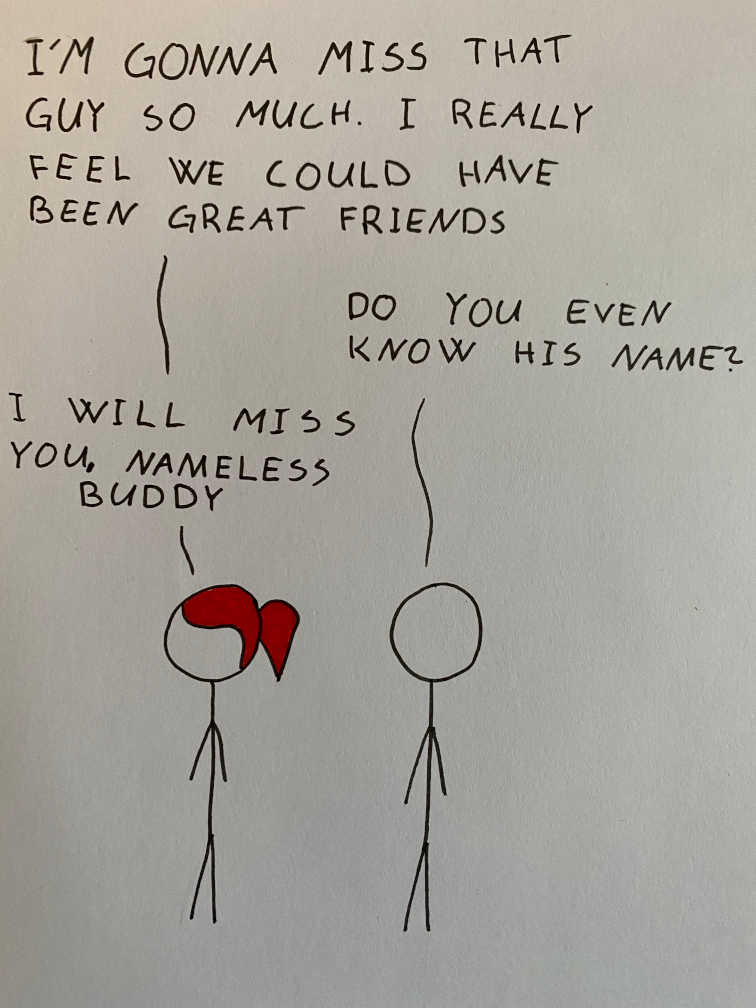 I'M GONNA MISS THAT
GUY SO MUCH. I REALLY
FEEL WE COULD HAVE
BEEN GREAT FRIENDS
DO YOU EVEN
KNOW HIS NAME?
I WILL MISS
YOU, NAMELESS
BUDDY